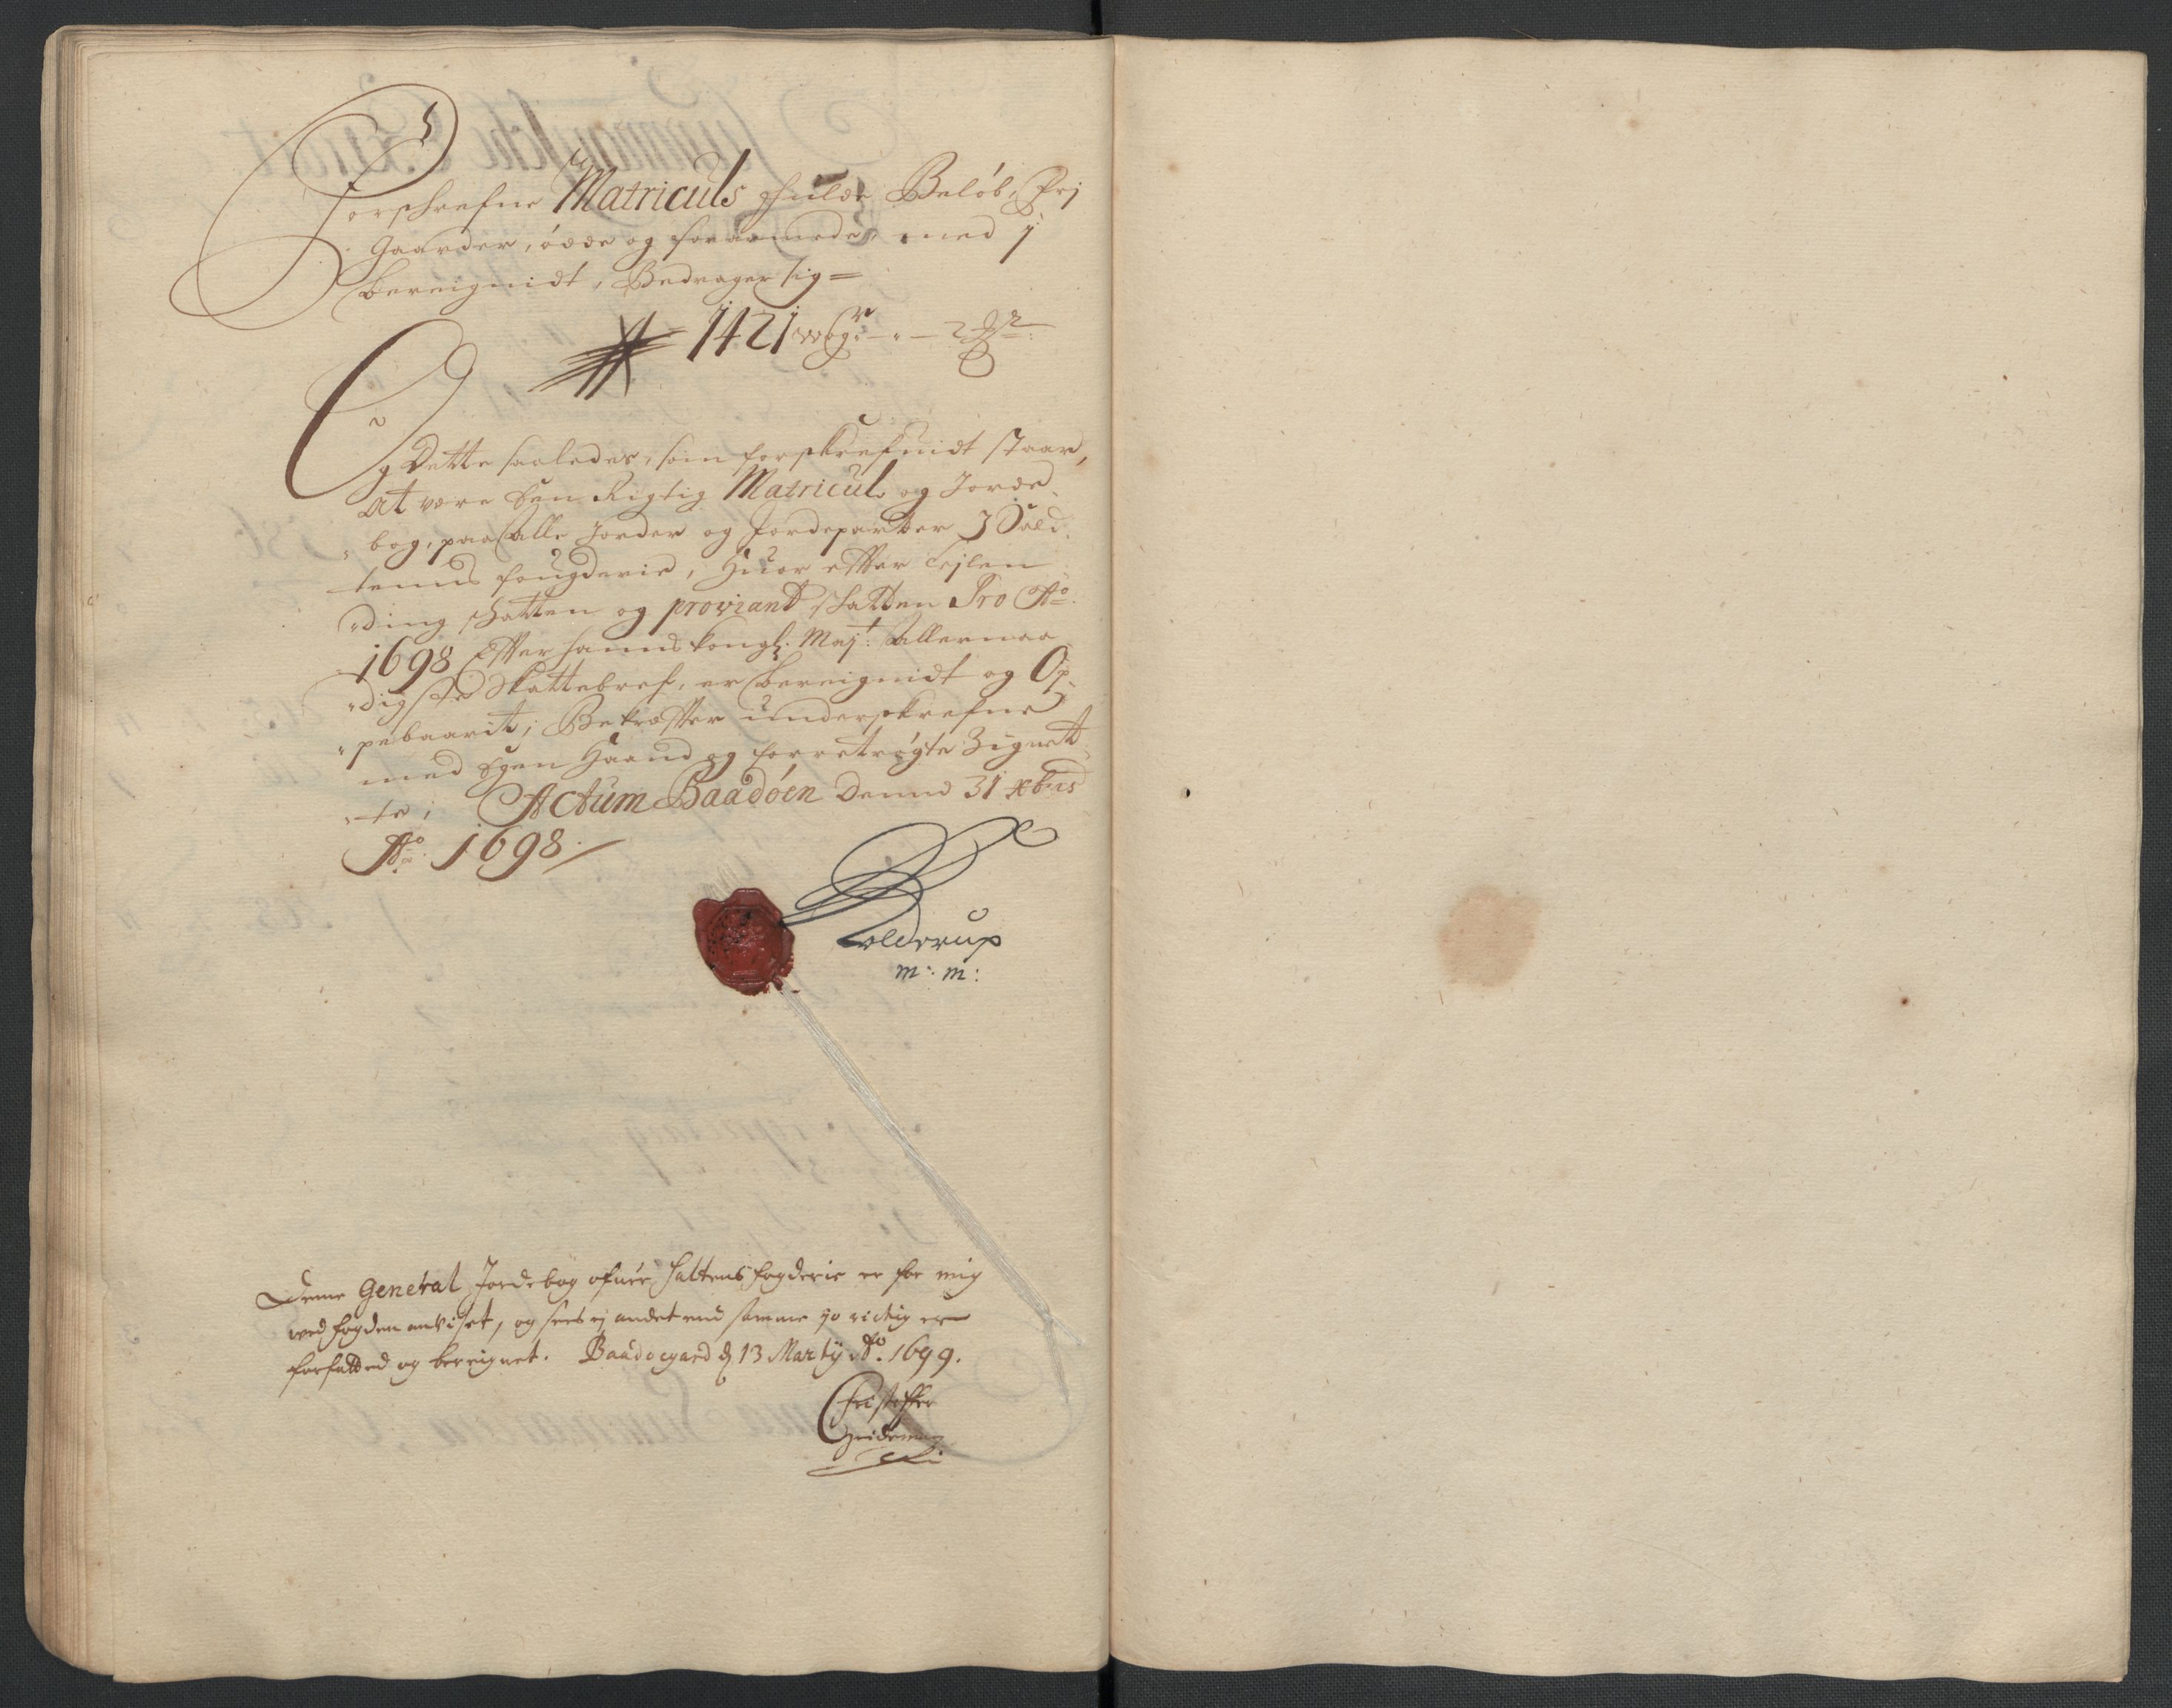 Forschrefne Matriculs schulde Beløb, Frj
Gaarder, øde og forarmede, med j
bereignidt, Bedrager sig =
1421 wogr - " - 2
Og Dette saaledes, som forskrefuidt staar,
At vere Een Rigtig Matricul og Jorde-
" bog, paa alle Jorder og Jordeparter J Sal-
tenns fougderie, Huor effter Lejlen
" ding schatten og proviant schatten Pro Ao
1698 Effter hanns kongl: Maj:t allernaa
" digste Skattebref, er bereignidt og Op-
" pebaarit, Bekræffter underskrefne
med Egen Haand og forretrøgte Zignett
" te; Actum Baadøen Dennd 31 xbris
Ao: 1698.
Colderup
m: m:
Denne General Jordebog ofuer Saltens fogderie er for mig
wed fogden anviset, og sees ej andet end samme jo richtig er
forfatted og bereignet. Baadøegaard d 13 Martij Ao. 1699.
Christoffer
Heideman